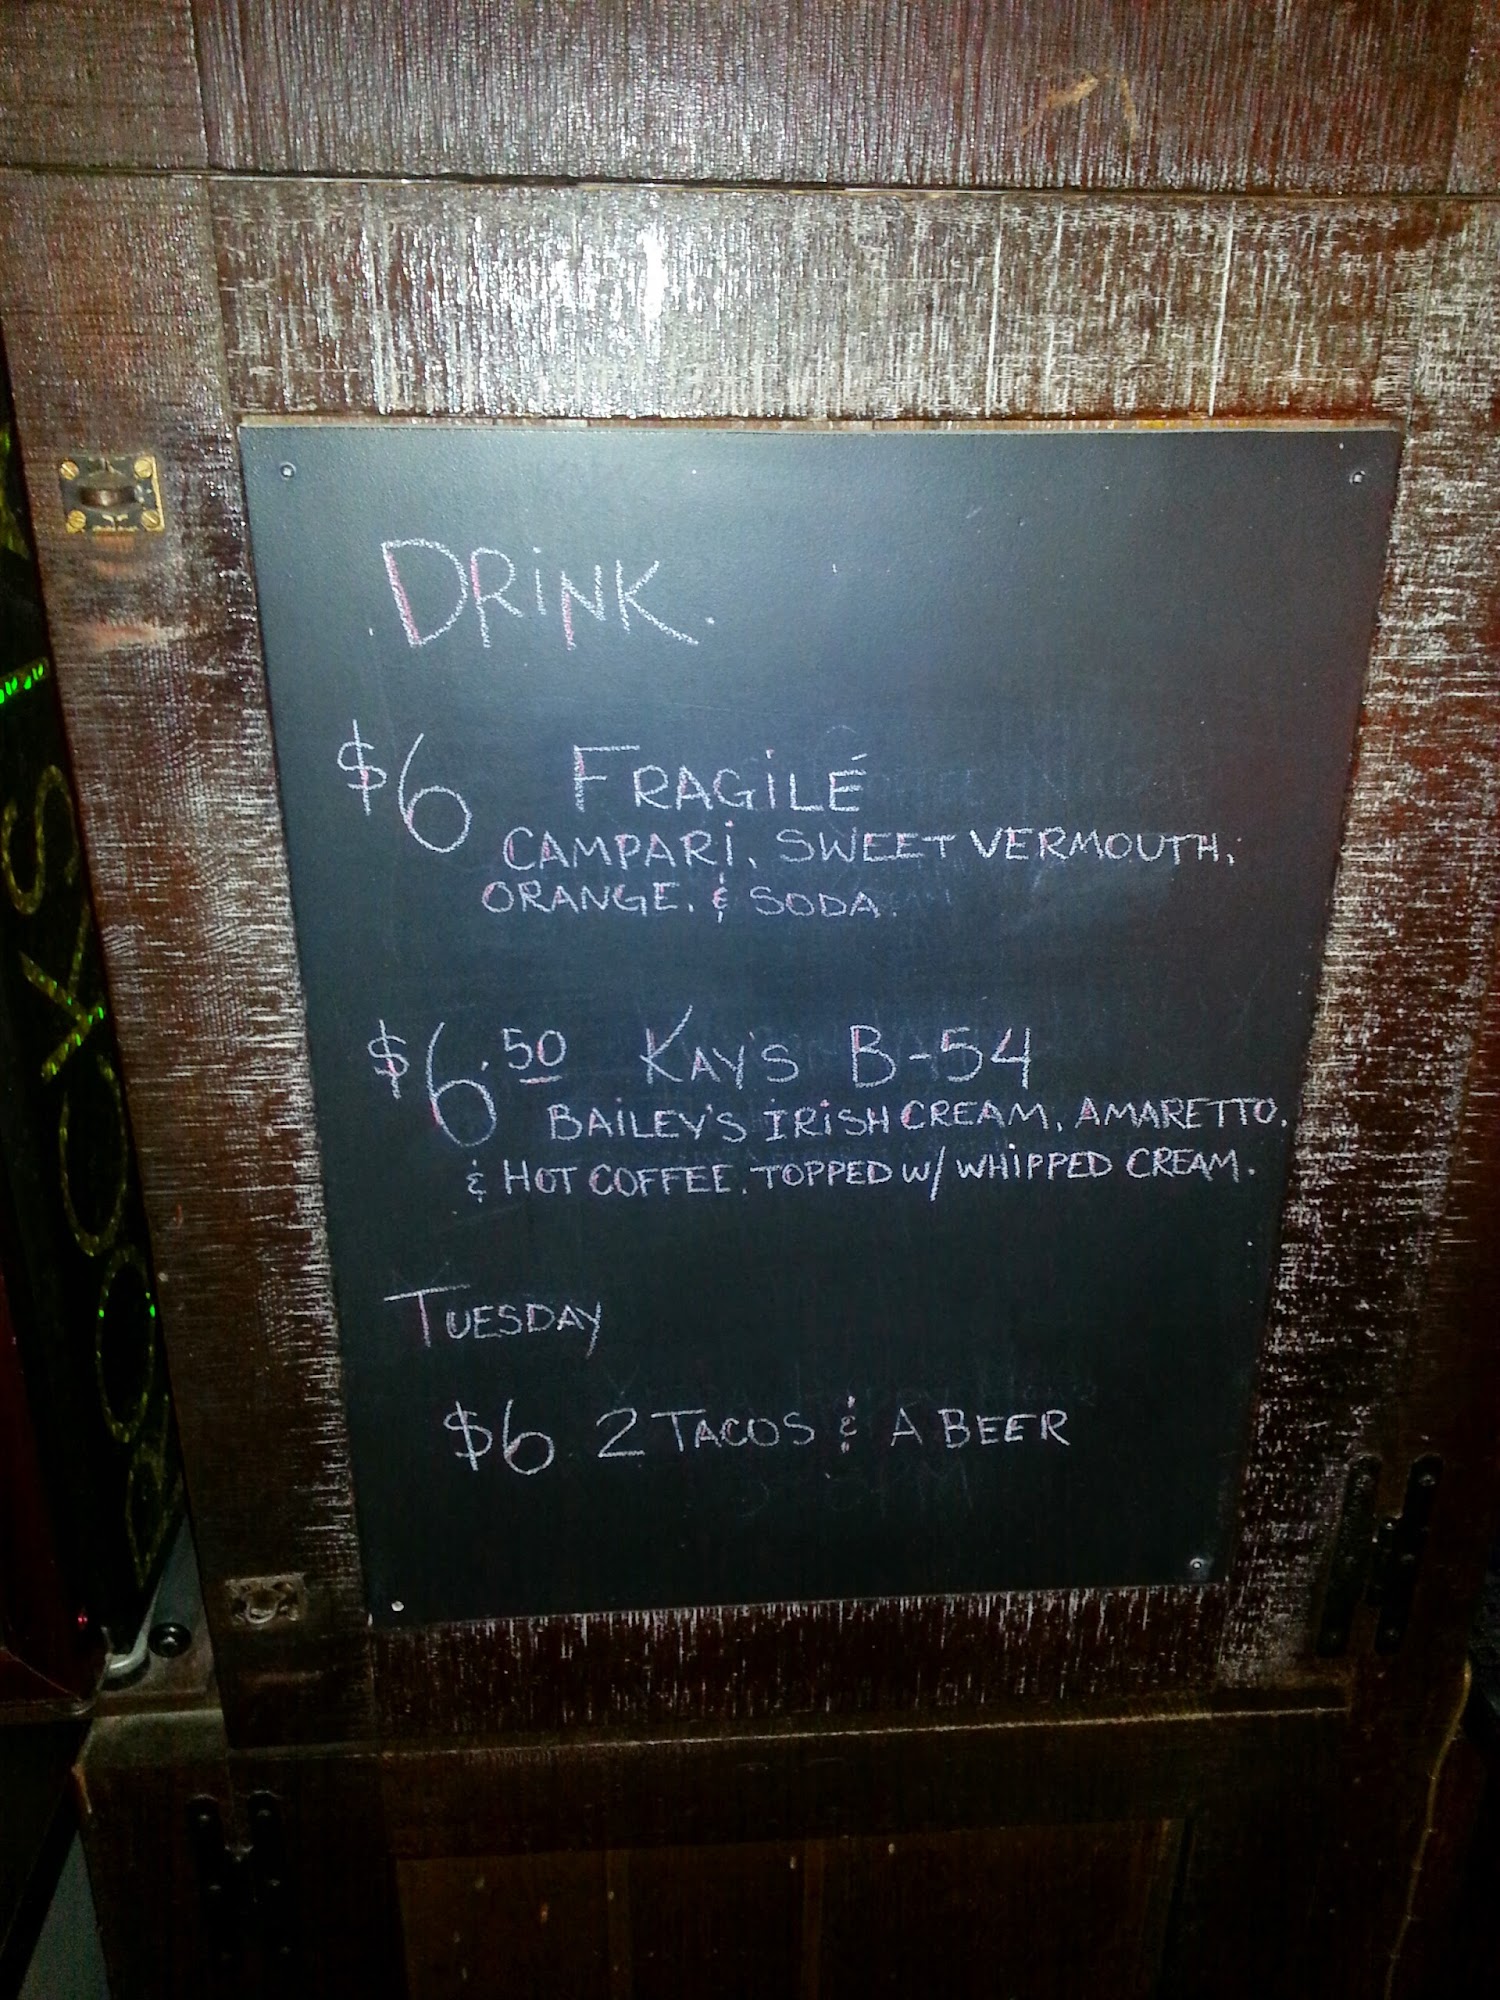 DRINK.
$6 FRAGILÉ
CAMPARI, SWEET VERMOUTH,
ORANGE, & SODA.
$6.50 KAY'S B-54
BAILEY'S IRISH CREAM, AMARETTO,
& HOT COFFEE, TOPPED W/ WHIPPED CREAM.
TUESDAY
$6 2 TACOS & A BEER